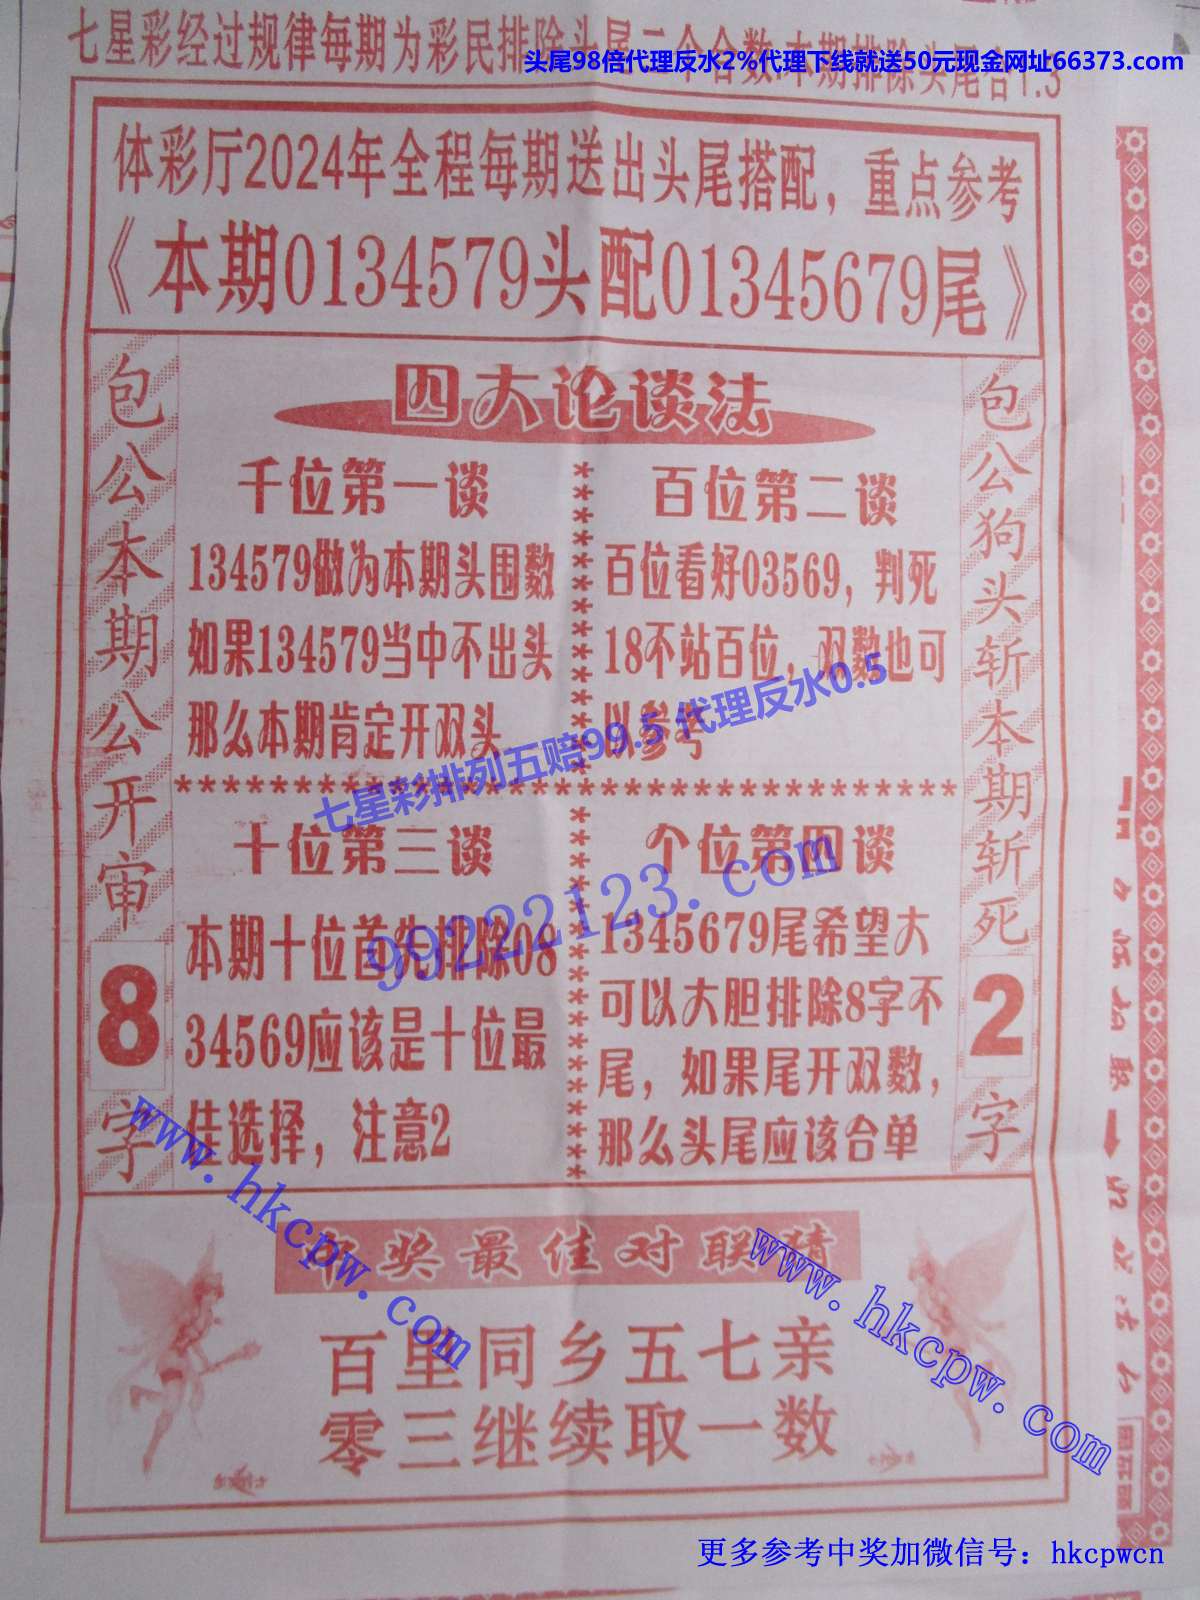 七星彩经过规律每期为彩民排除头尾二个合数.本期排除头尾合1.3
头尾98倍代理反水2%代理下线就送50元现金网址66373.com
体彩厅2024年全程每期送出头尾搭配，重点参考
《本期0134579头配01345679尾》
包公本期公开审8字
四大论谈法
千位第一谈
134579做为本期头围数
如果134579当中不出头
那么本期肯定开双头
百位第二谈
百位看好03569，判死
18不站百位，双数也可
以参考
七星彩排列五赔99.5 代理反水0.5
************************************
十位第三谈
本期十位首先排除08
34569应该是十位最
佳选择，注意2
个位第四谈
1345679尾希望大
可以大胆排除8字不
尾，如果尾开双数，
那么头尾应该合单
99222123.com
包公狗头斩本期斩死2字
www.hkcpw.com
www.hkcpw.com
奖最佳对联猜
百里同乡五七亲
零三继续取一数
更多参考中奖加微信号：hkcpwcn